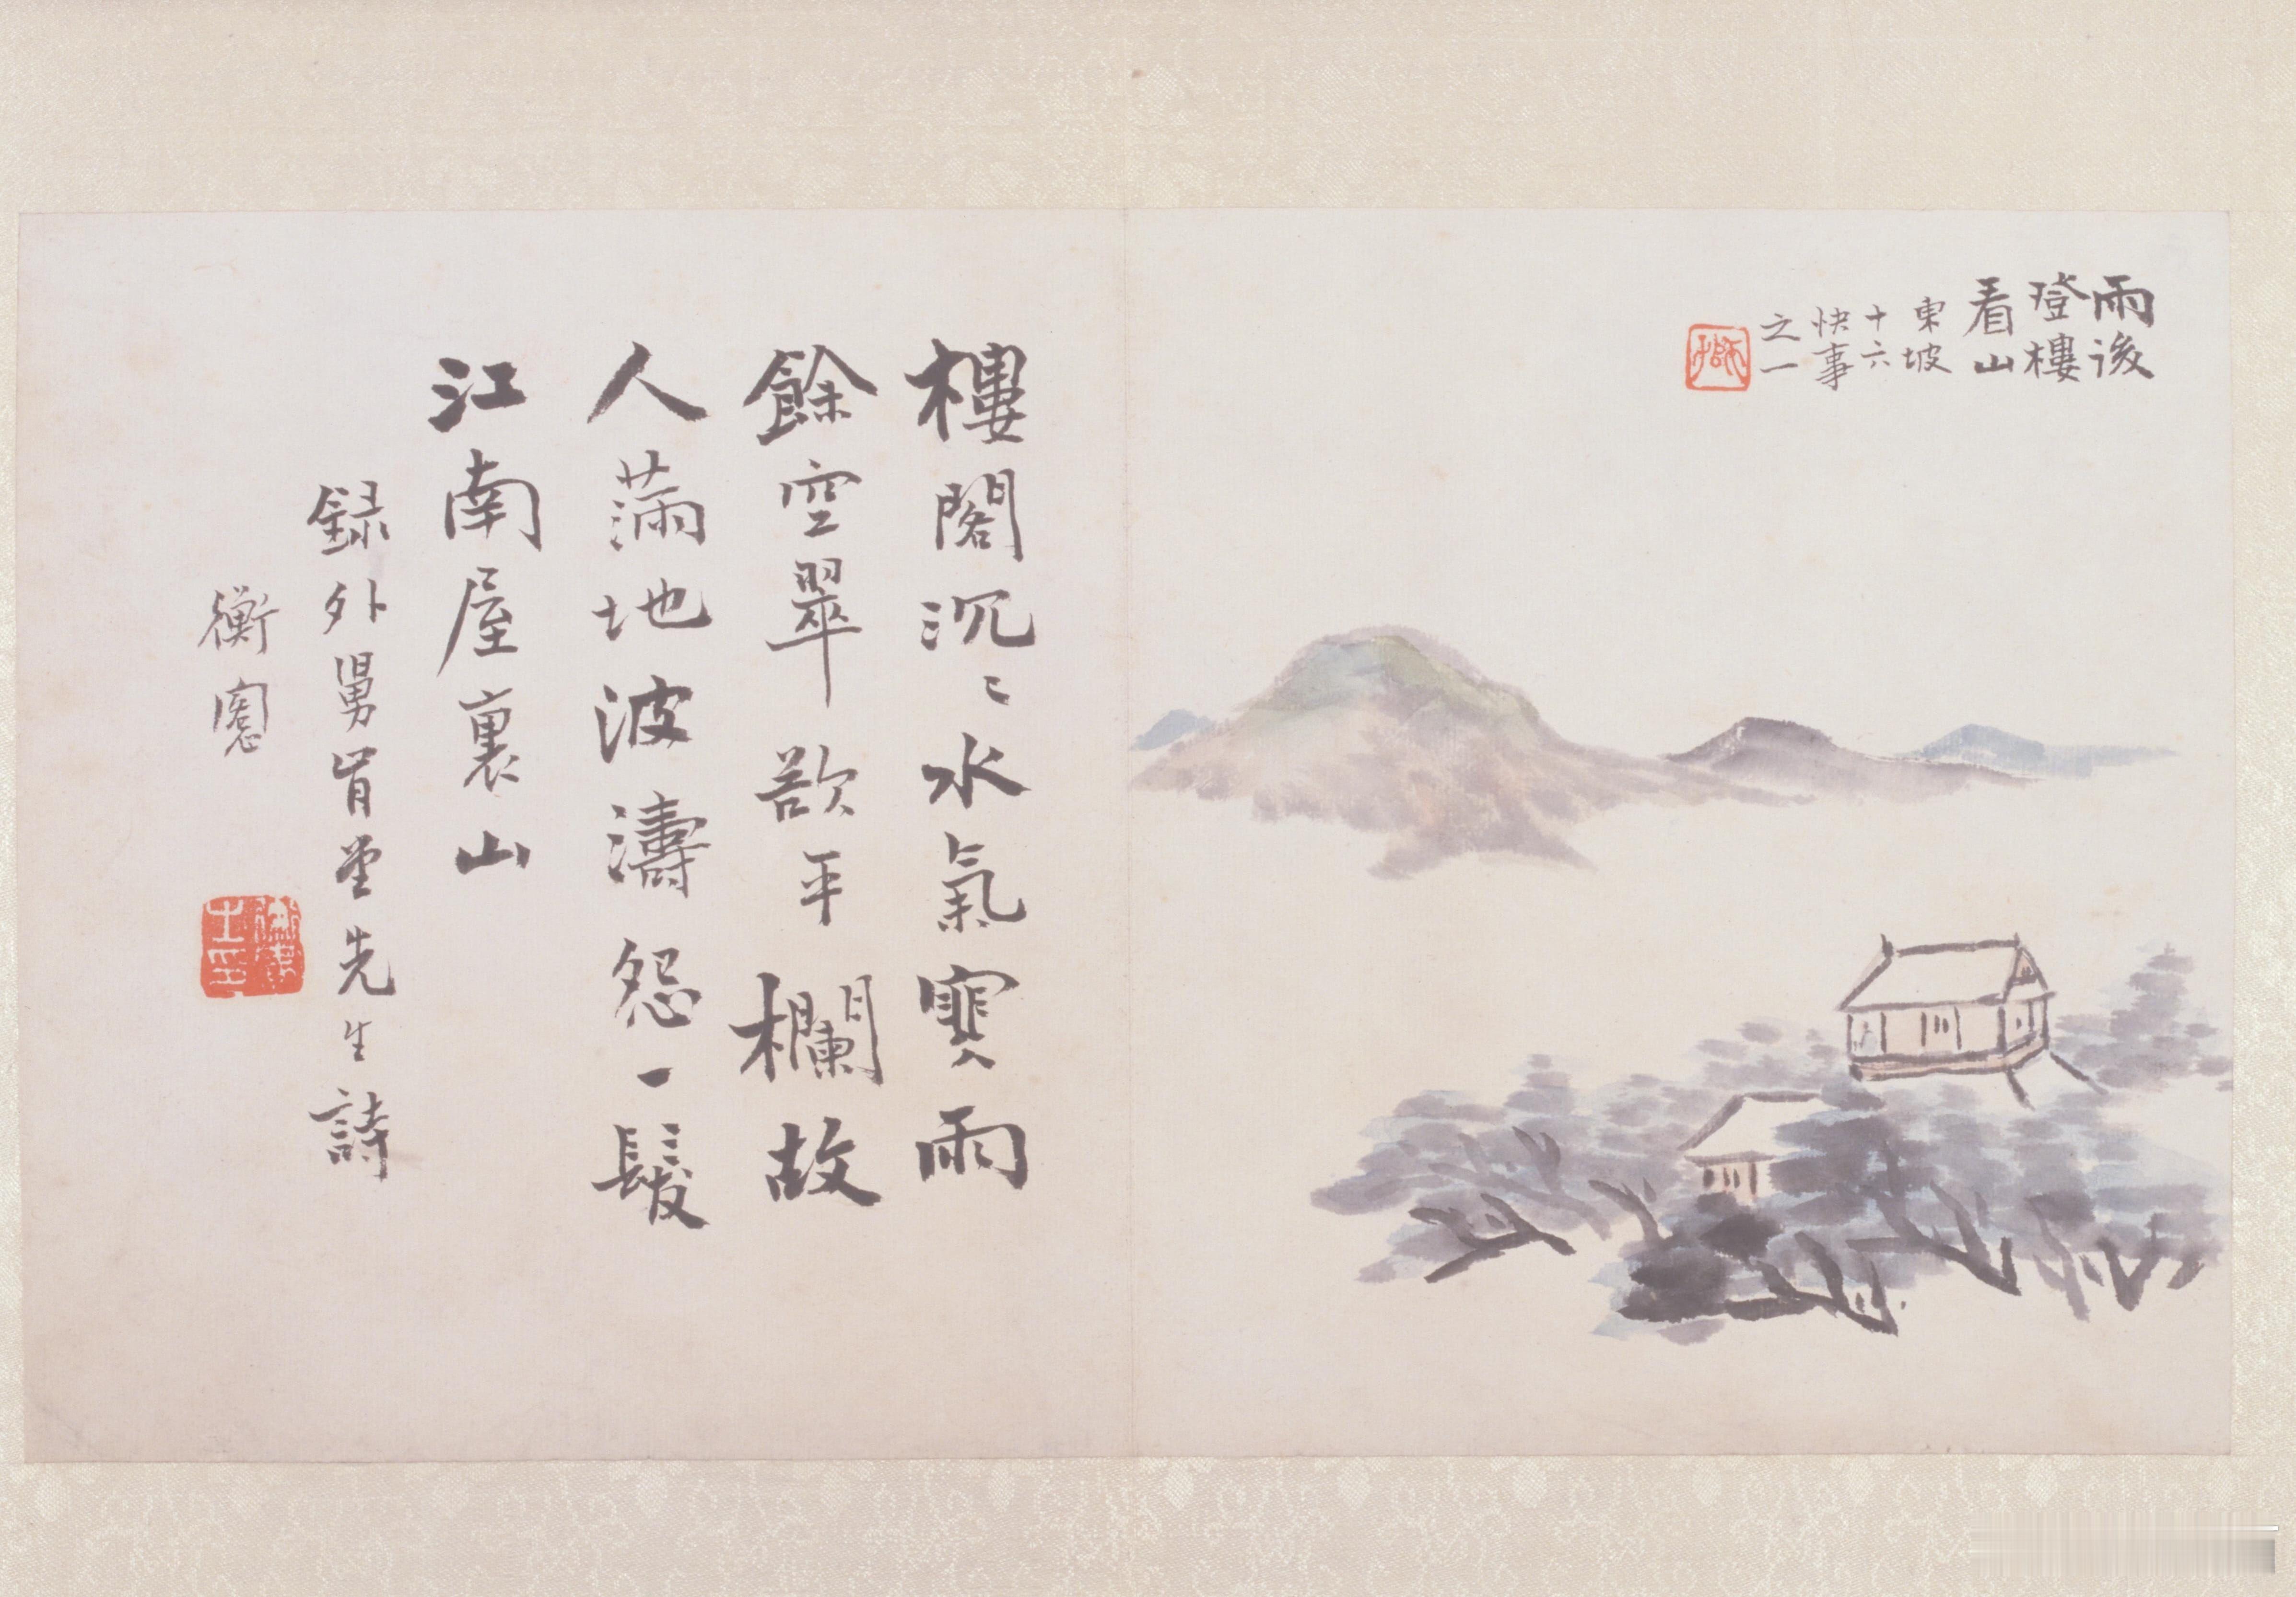 雨後
登樓
看山
東坡
十六
快事
之一
樓閣沉〻水氣寒雨
餘空翠欲平欄故
人滿地波濤怨一髮
江南屋裏山
録外舅肯堂先生詩
衡窻